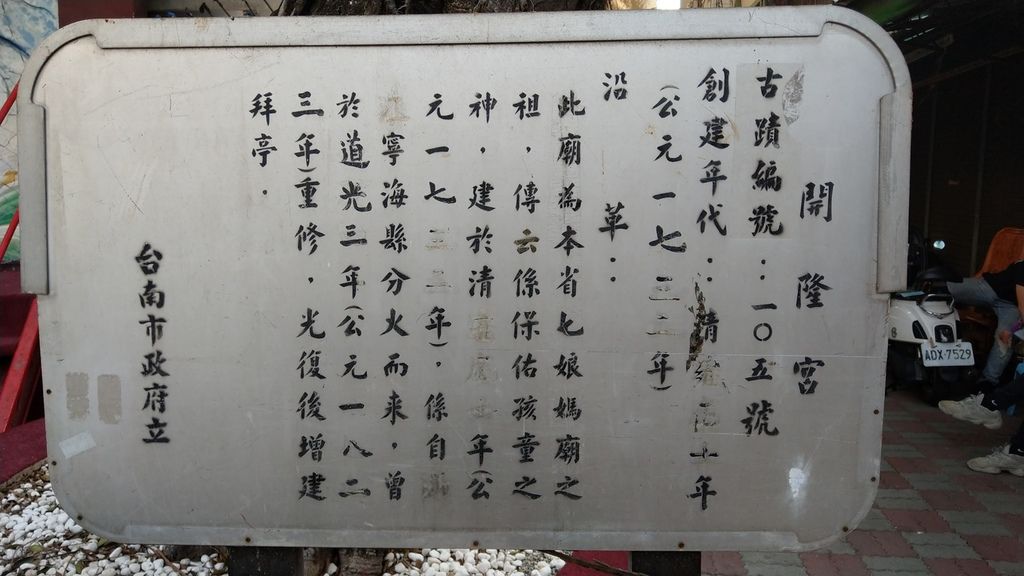 開隆宮
古蹟編號：一〇五號
創建年代：清 十年
（公元一七三二年）
沿革：
此廟為本省七娘媽廟之
祖，傳云係保佑孩童之
神，建於清 年（公
元一七三二年），係自
寧海縣分火而來，曾
於道光三年（公元一八二
三年）重修，光復後增建
拜亭．
台南市政府立
ADX-7529